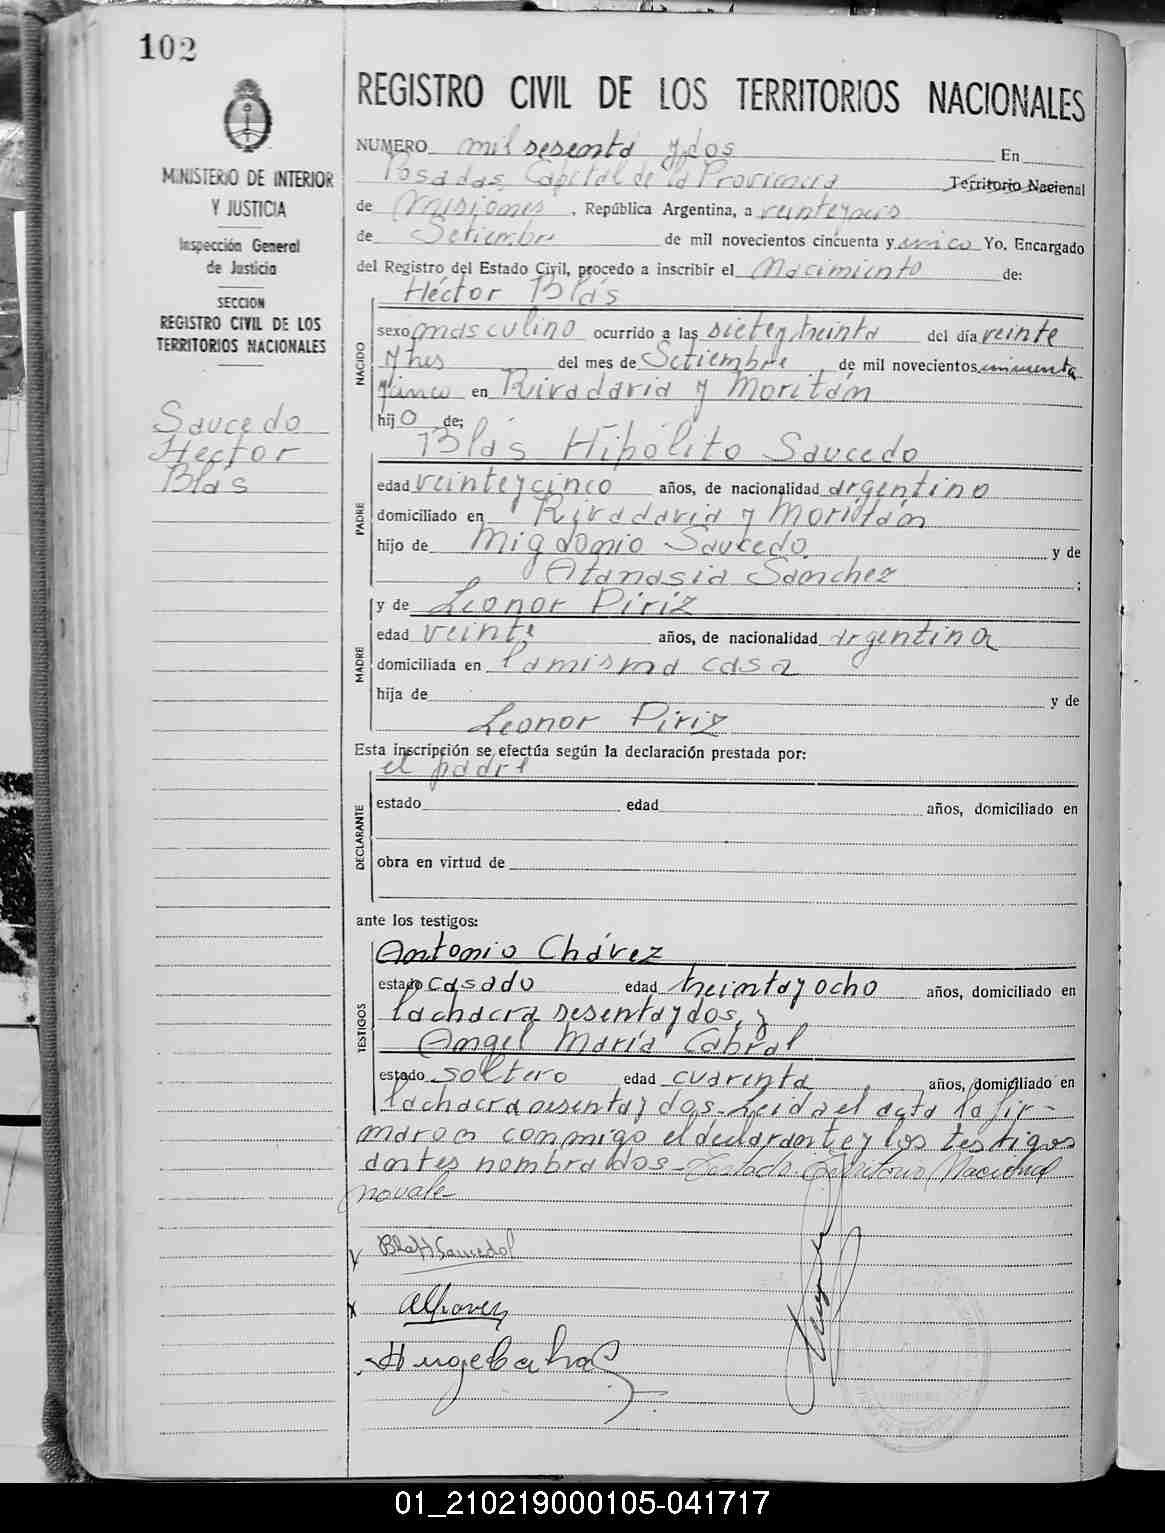 102
REGISTRO CIVIL DE LOS TERRITORIOS NACIONALES
MINISTERIO DE INTERIOR
Y JUSTICIA
Inspección General
de Justicia
SECCION
REGISTRO CIVIL DE LOS
TERRITORIOS NACIONALES
Saucedo
Hector
Blás
NUMERO mil sesenta y dos En
Posadas, Capital de la Provincia Territorio Nacional
de Misiones, República Argentina, a veinteyseis
de Setiembre de mil novecientos cincuenta y cinco Yo, Encargado
del Registro del Estado Civil, procedo a inscribir el Nacimiento de:
Héctor Blás
NACIDO
sexo masculino ocurrido a las sieteytreinta del día veinte
ytres del mes de Setiembre de mil novecientos cincuenta
ycinco en Rivadavia y Moritán
hijo de;
Blás Hipólito Saucedo
PADRE
edad veinteycinco años, de nacionalidad argentino
domiciliado en Rivadavia y Moritán
hijo de Migdonio Saucedo y de
Atanasia Sánchez ;
y de Leonor Piriz
MADRE
edad veinte años, de nacionalidad argentina
domiciliada en lamisma casa
hija de y de
Leonor Piriz
Esta inscripción se efectúa según la declaración prestada por:
el padre
DECLARANTE
estado edad años, domiciliado en
obra en virtud de
ante los testigos:
Antonio Chávez
TESTIGOS
estado casado edad treintayocho años, domiciliado en
lachacra sesentaydos, y
Angel María Cabral
estado soltero edad cuarenta, años, domiciliado en
lachacra sesentaydos-Leida el acta la fir-
maron conmigo eldeclarante y los testigos
antes nombrados-Testado: Territorio Nacional
novale-
Blas H Saucedo
AChavez
Angel Cabral
01_210219000105-041717